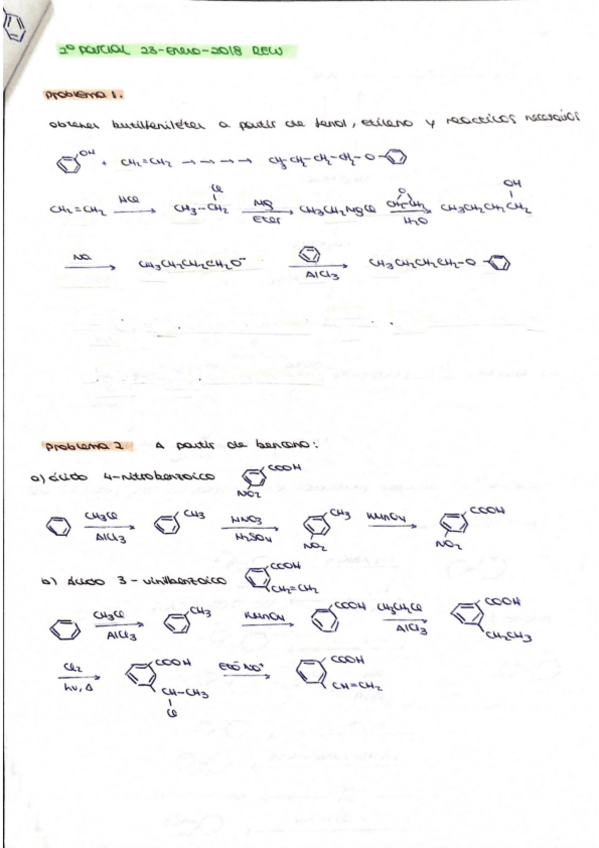 2º parcial 23-Enero-2018 REW
Problema 1.
obtener butilfeniléter a partir de fenol, etileno y reactivos necesarios
OH + CH2=CH2 → → → → CH3-CH2-CH2-CH2-O-
CH2=CH2 HCl → CH3-CH2 Cl Mg Éter → CH3CH2MgCl O CH2-CH2 H2O → CH3CH2CH2CH2 OH
Na → CH3CH2CH2CH2O⁻ AlCl3 → CH3CH2CH2CH2-O-
Problema 2 A partir de benceno:
a) ácido 4-nitrobenzoico COOH NO2
CH3Cl AlCl3 → CH3 HNO3 H2SO4 → CH3 NO2 KMnO4 → COOH NO2
b) ácido 3-vinilbenzoico COOH CH=CH2
CH3Cl AlCl3 → CH3 KMnO4 → COOH CH3CH2Cl AlCl3 → COOH CH2CH3
Cl2 hν, Δ → COOH CH-CH3 Cl EtO⁻Na⁺ → COOH CH=CH2